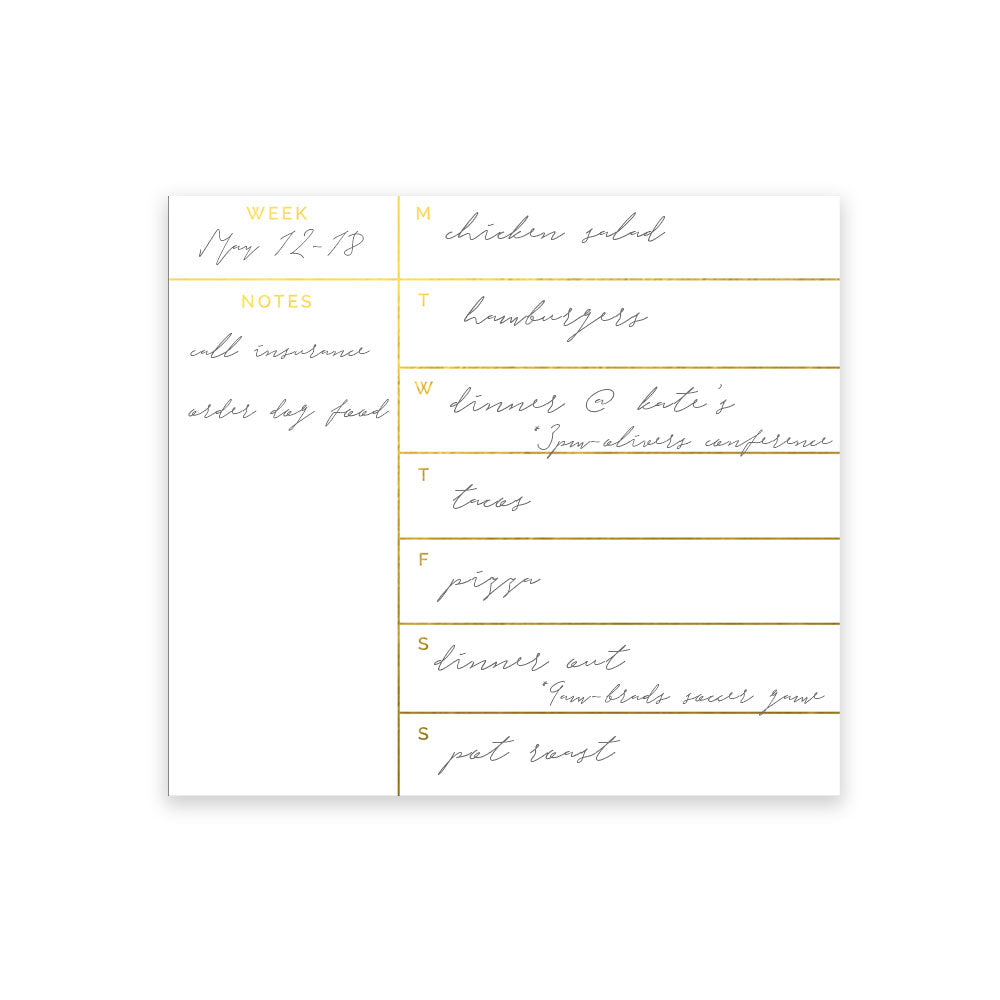 WEEK
May 12-18
NOTES
call insurance
order dog food
M
chicken salad
T
hamburgers
W
dinner @ kate's
*3pm-olivers conference
T
tacos
F
pizza
S
dinner out
*9am-brads soccer game
S
pot roast